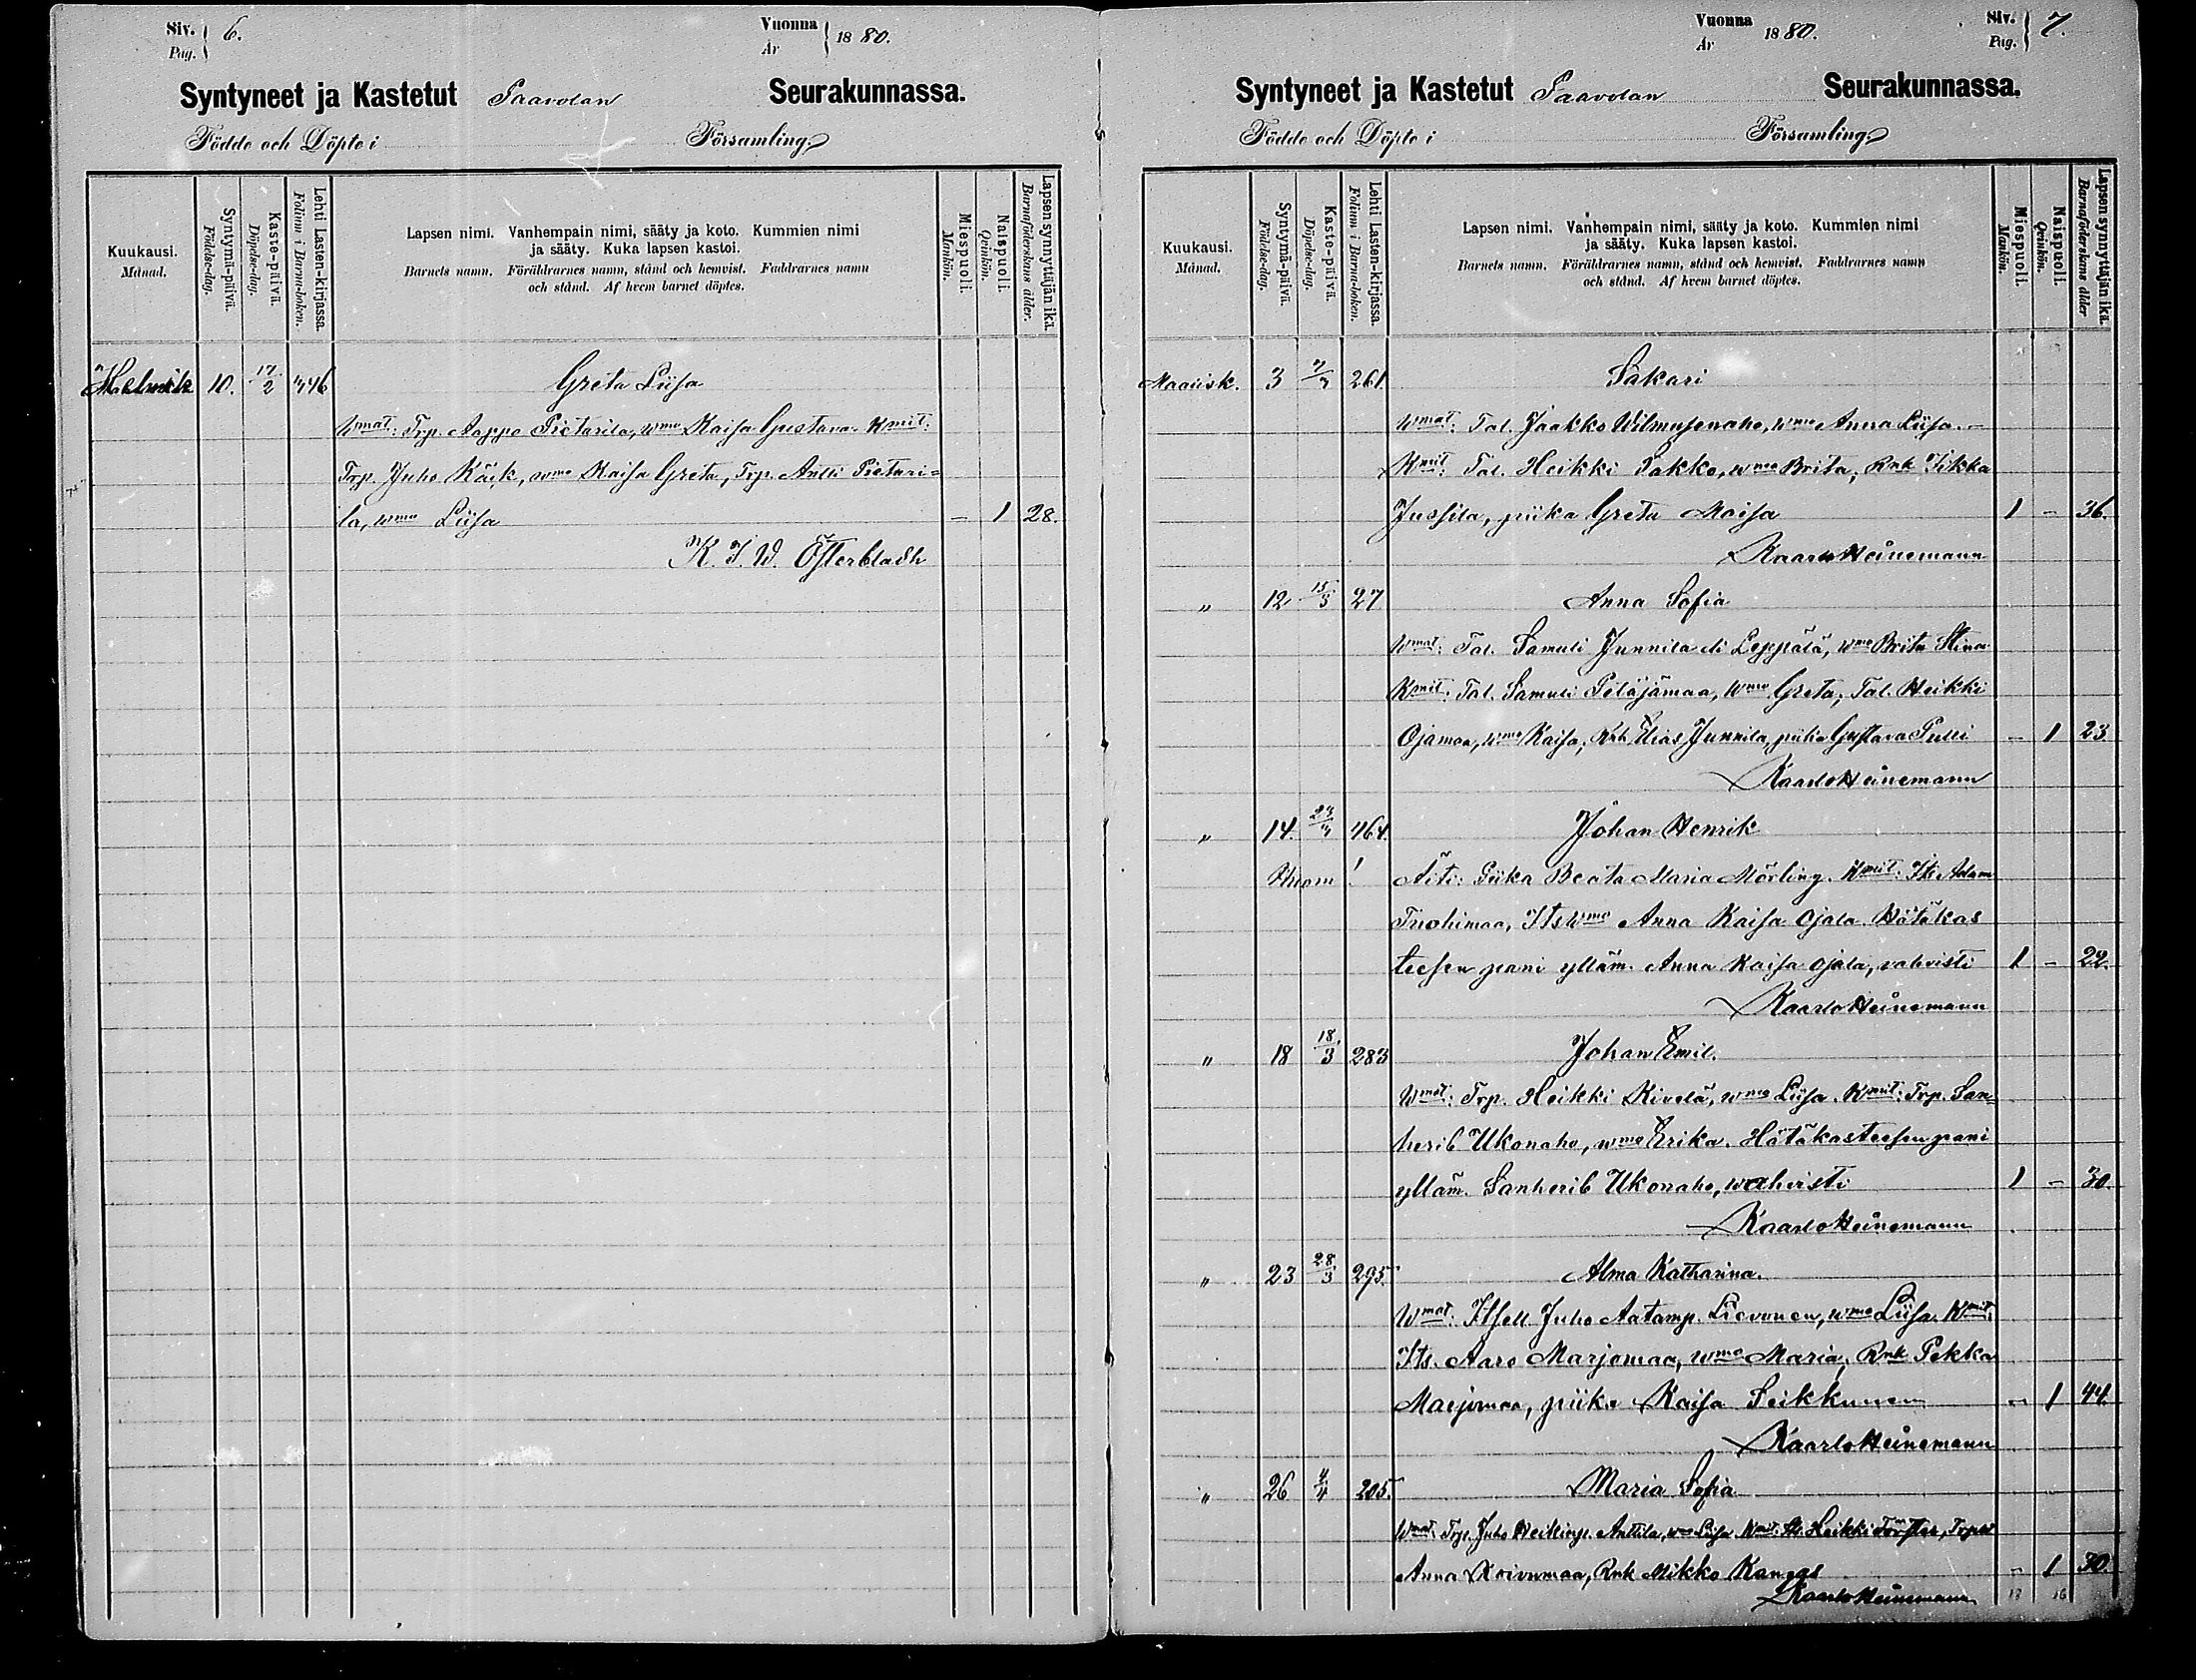 Siv. 6.
Pag.
Vuonna 1880.
År
Syntyneet ja Kastetut Paavolan Seurakunnassa.
Födde och Döpte i Församling.
Kuukausi.
Månad.
Syntymä-päivä.
Födelse-dag.
Kaste-päivä.
Döpelse-dag.
Lehti Lasten-kirjassa.
Folium i Barna-boken.
Lapsen nimi. Vanhempain nimi, sääty ja koto. Kummien nimi
ja sääty. Kuka lapsen kastoi.
Barnets namn. Föräldrarnes namn, stånd och hemvist. Faddrarnes namn
och stånd. Af hvem barnet döptes.
Miespuoli.
Mankön.
Naispuoli.
Qvinkön.
Lapsen synnyttäjän ikä.
Barnaföderskans ålder.
Helmik 10. 17/2 446 Greta Liisa
Wmat: Trp. Aappo Pietarila, wmo Kaisa Gustava. Kmit:
Trp. Juho Käik, wmo Kaisa Greta, Trp. Antti Pietari=
la, wmo Liisa — 1 28.
K. J. W. Österbladh
Siv. 7.
Pag.
Vuonna 1880.
År
Syntyneet ja Kastetut Paavolan Seurakunnassa.
Födde och Döpte i Församling
Kuukausi.
Månad.
Syntymä-päivä.
Födelse-dag.
Kaste-päivä.
Döpelse-dag.
Lehti Lasten-kirjassa.
Folium i Barna-boken.
Lapsen nimi. Vanhempain nimi, sääty ja koto. Kummien nimi
ja sääty. Kuka lapsen kastoi.
Barnets namn. Föräldrarnes namn, stånd och hemvist. Faddrarnes namn
och stånd. Af hvem barnet döptes.
Miespuoli.
Mankön.
Naispuoli.
Qvinkön.
Lapsen synnyttäjän ikä.
Barnaföderskans ålder
Maalisk. 3 7/3 261 Sakari
Wmat: Tal. Jaakko Wilmusenaho, wmo Anna Liisa. —
Kmit: Tal. Heikki Pakko, wmo Brita, Rnk Pikka
Jussila, piika Greta Maija 1 — 36.
Kaarlo Heinemann
" 12 15/3 27 Anna Sofia
Wmat: Tal. Samuli Junnila eli Leppälä, wmo Brita Stina
Kmit: Tal. Samuli Peläjämaa, Wmo Greta, Tal. Heikki
Ojamaa, wmo Kaisa, Rnk Elias Junnila, piika Gustava Pulli — 1 23.
Kaarlo Heinemann
" 14. 27/3 464. Johan Henrik
Huom! Äiti: Piika Beata Maria Mörling. Kmit: Its. Adam
Tuohimaa, Itswmo Anna Kaisa Ojala. Hätäkas
teesen pani ylläm. Anna Kaisa Ojala, vahvisti 1 — 22.
Kaarlo Heinemann
" 18 18/3 283 Johan Emil.
Wmat: Trp. Heikki Kivelä, wmo Liisa. Kmit: Trp. San=
herib Ukonaho, wmo Erika. Hätäkasteesen pani
ylläm. Sanherib Ukonaho, wahvisti 1 — 30.
Kaarlo Heinemann
" 23 28/3 295. Alma Katharina.
Wmat: Itsell. Juho Aatamp. Lievonen, wmo Liisa. Kmit:
Its. Aaro Marjomaa, wmo Maria, Rnk Pekka
Marjomaa, piika Kaisa Seikkunen — 1 44.
Kaarlo Heinemann
" 26 4/4 205. Maria Sofia
Wmat: Trp. Juho Heikinp. Anttila, wmo Liisa Kmit: Heikki Törfter, Trpw
Anna Koivumaa, Rnk Mikko Kangas — 1 30.
Kaarlo Heinemann